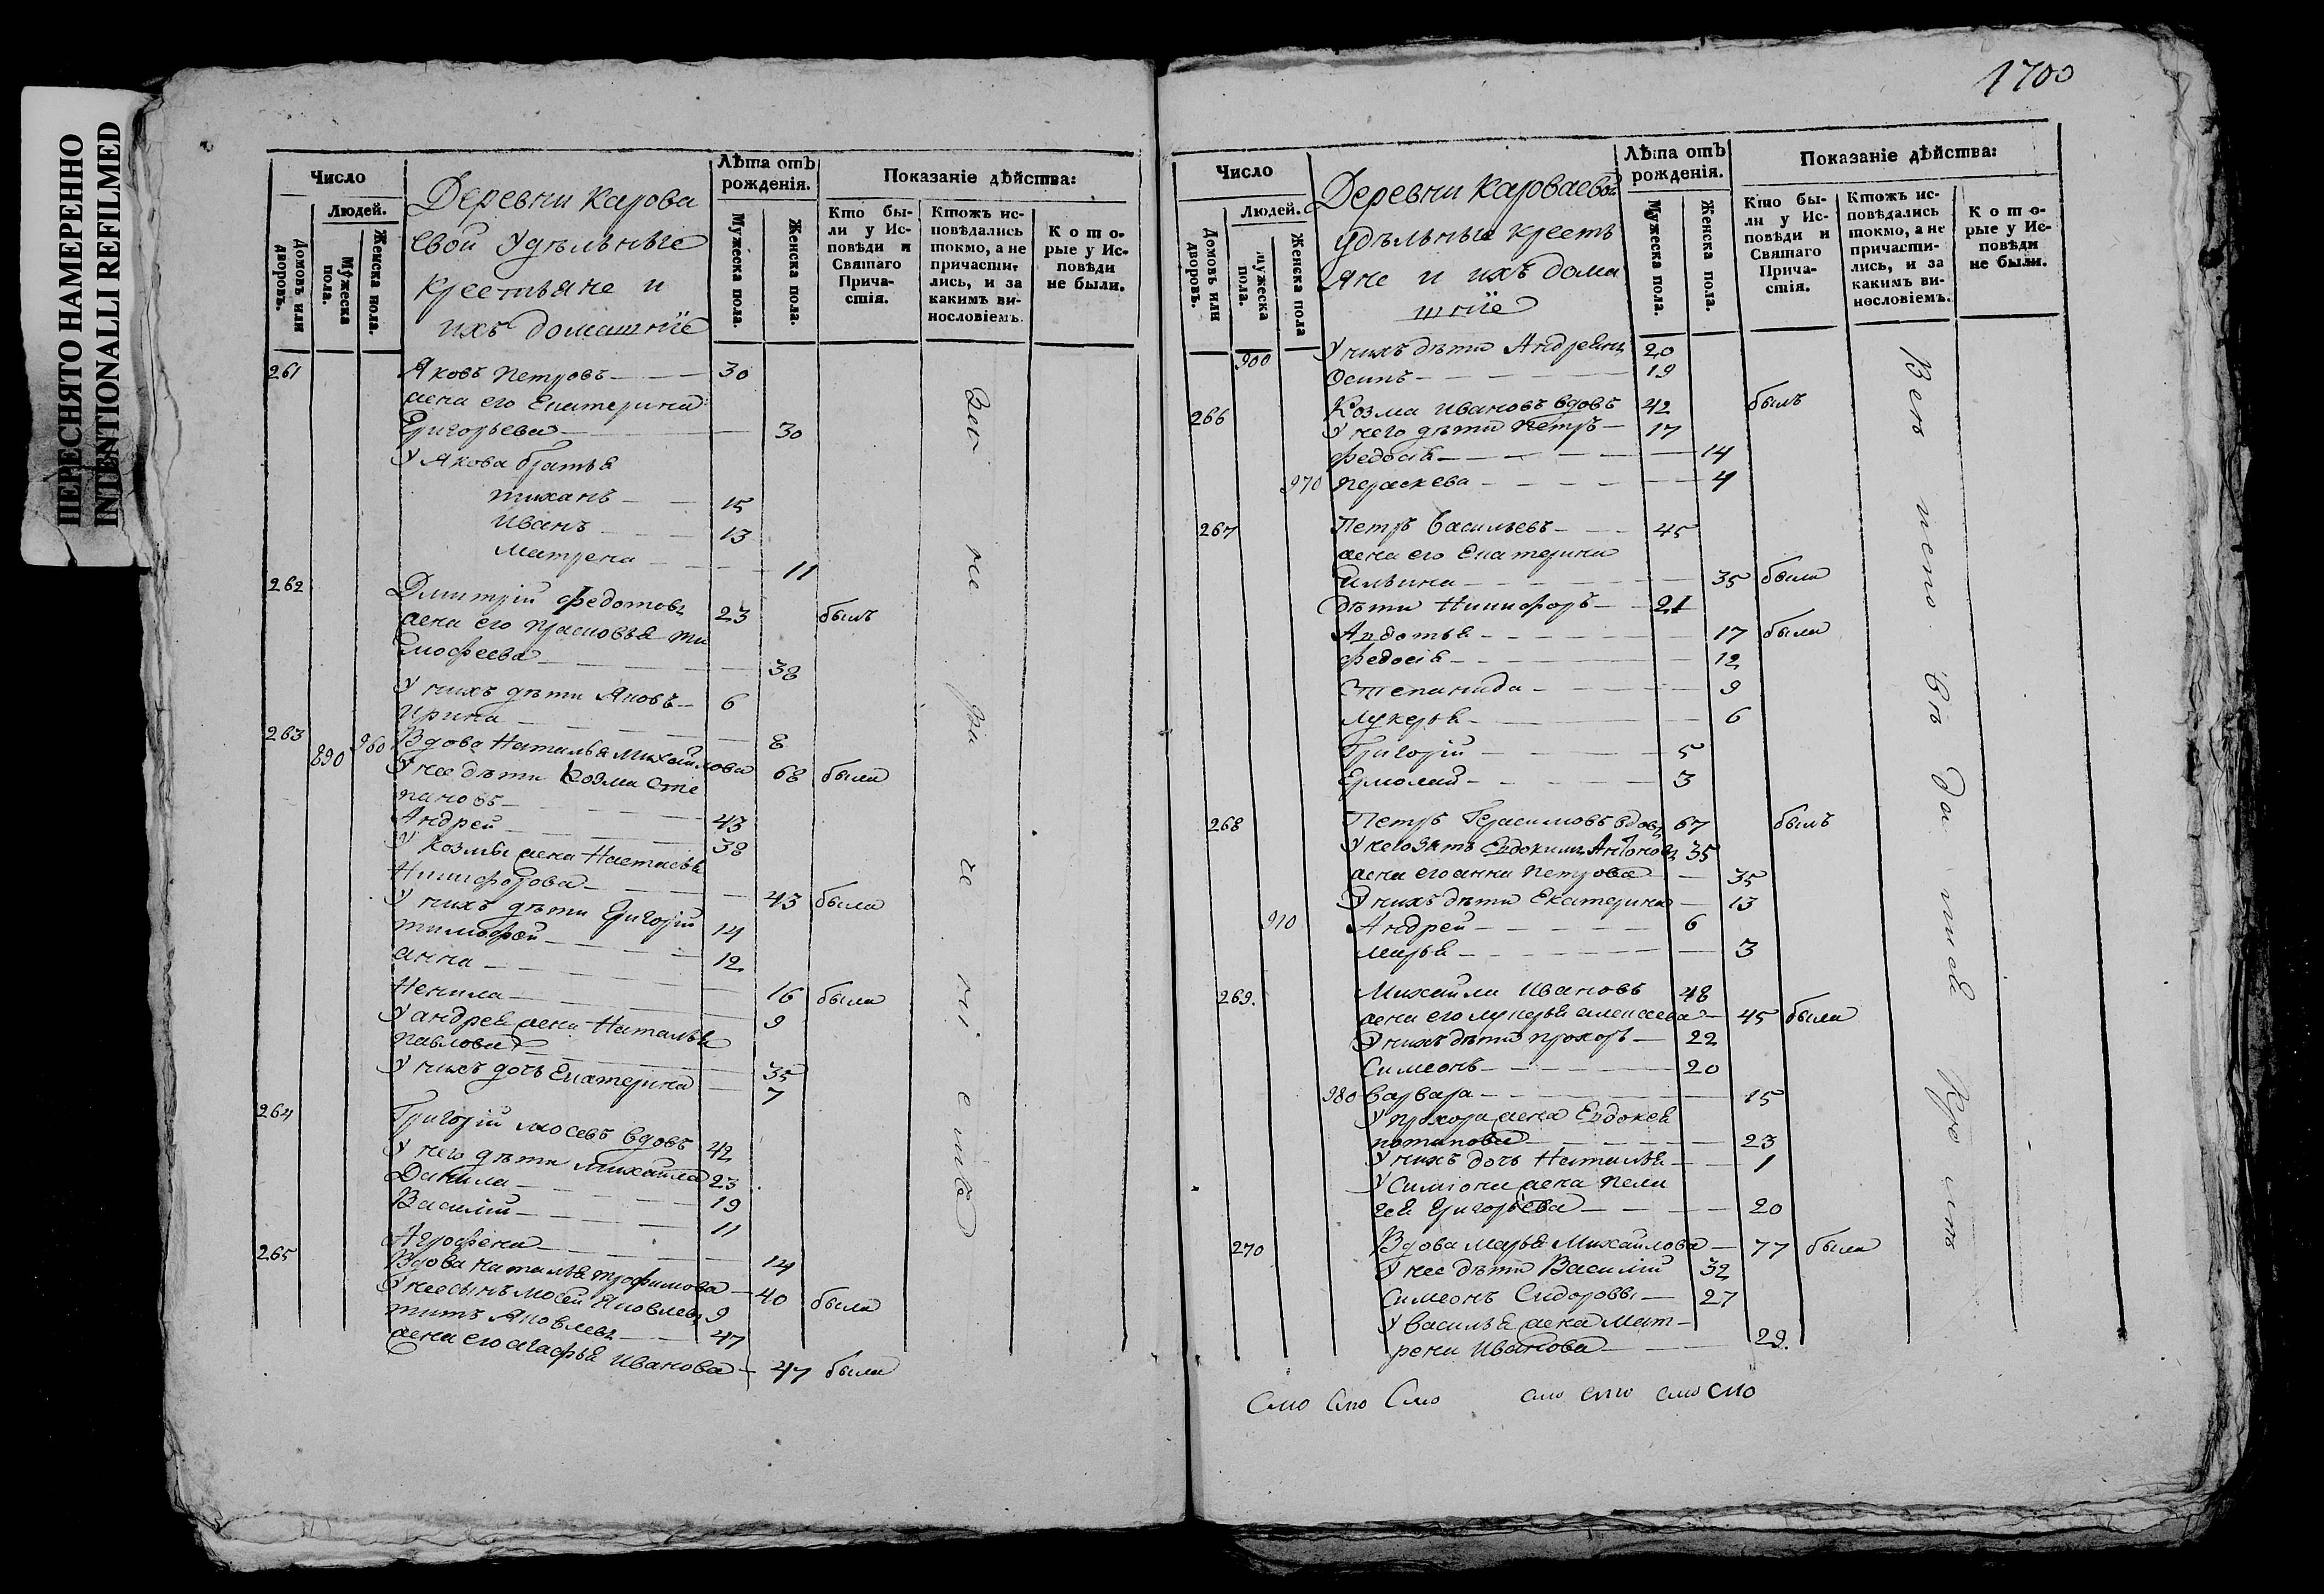 ПЕРЕСНЯТО НАМЕРЕННО
INTENTIONALLI REFILMED
Число
Людей.
Домовъ или дворовъ.
Мужеска пола.
Женска пола.
Деревни Карова
евой Удѣльные
Крестьяне и
ихъ домашніе
Лѣта отъ
рожденія.
Мужеска пола.
Женска пола.
Показаніе дѣйства:
Кто бы-
ли у Ис-
повѣди и
Святаго
Прича-
стія.
Ктожъ ис-
повѣдались
токмо, а не
причасти-
лись, и за
какимъ ви-
нословіемъ.
Кото-
рые у Ис-
повѣди
не были.
261 Яковъ Петровъ 30
жена его Екатерина
Григорьева 30
У Якова братья
Тиханъ 15
Иванъ 13
Матрена 11
262 Дмитрій Федотовъ 23 былъ
жена его Прасковья Ти
мофеева 38
У нихъ дѣти Яковъ 6
Ирина 8
263 890 960 Вдова Наталья Михайлова 68 была
У нее дѣти Козма Сте
пановъ 43
Андрей 38
У Козмы жена Настасья
Никифорова 43 была
У нихъ дѣти Григорій 14
Тимофей 12
Анна 16 была
Ненила 9
У Андрея жена Наталья
Павлова 35
У нихъ дочь Екатерина 7
264 Григорій Мосевъ вдовъ 42
У него дѣти Михайла 23
Данила 19
Василій 11
Агрофена 14
265 Вдова Наталья Трофимова 40 была
У нее сынъ Мосей Яковлевъ 9
Титъ Яковлевъ 47
жена его Агафья Иванова 47 была
1700
Число
Людей.
Домовъ или дворовъ.
Мужеска пола.
Женска пола
Деревни Короваевой
удѣльные кресть
яне и ихъ дома
шніе
Лѣта отъ
рожденія.
Мужеска пола.
Женска пола.
Показаніе дѣйства:
Кто бы-
ли у Ис-
повѣди и
Святаго
Прича-
стія.
Ктожъ ис-
повѣдались
токмо, а не
причасти-
лись, и за
какимъ ви-
нословіемъ.
Кото-
рые у Ис-
повѣди
не были.
900 У нихъ дѣти Андреянъ 20
Осипъ 19
266 Козма Ивановъ вдовъ 42 былъ
У него дѣти Петръ 17
Федосія 14
970 Параскева 4
267 Петръ Васильевъ 45
жена его Екатерина
Ильина 35 была
Дѣти Никифоръ 21
Авдотья 17 была
Федосія 12
Степанида 9
Лукерья 6
Григорій 5
Ермолай 3
268 Петръ Герасимовъ вдовъ 67 былъ
У него зять Евдокимъ Антоновъ 35
жена его Анна Петрова 35
У нихъ дѣти Екатерина 13
910 Андрей 6
Марья 3
269. Михайла Ивановъ 48
жена его Лукерья Алексеева 45 была
У нихъ дѣти Прохоръ 22
Симеонъ 20
980 Варвара 15
У Прохора жена Евдокея
Потапова 23
У нихъ дочь Наталья 1
У Симиона жена Пела
гея Григорьева 20
270 Вдова Марья Михайлова 77 была
У нее дѣти Василій 32
Симеонъ Сидоровы 27
У Василья жена Мат-
рена Иванова 29.